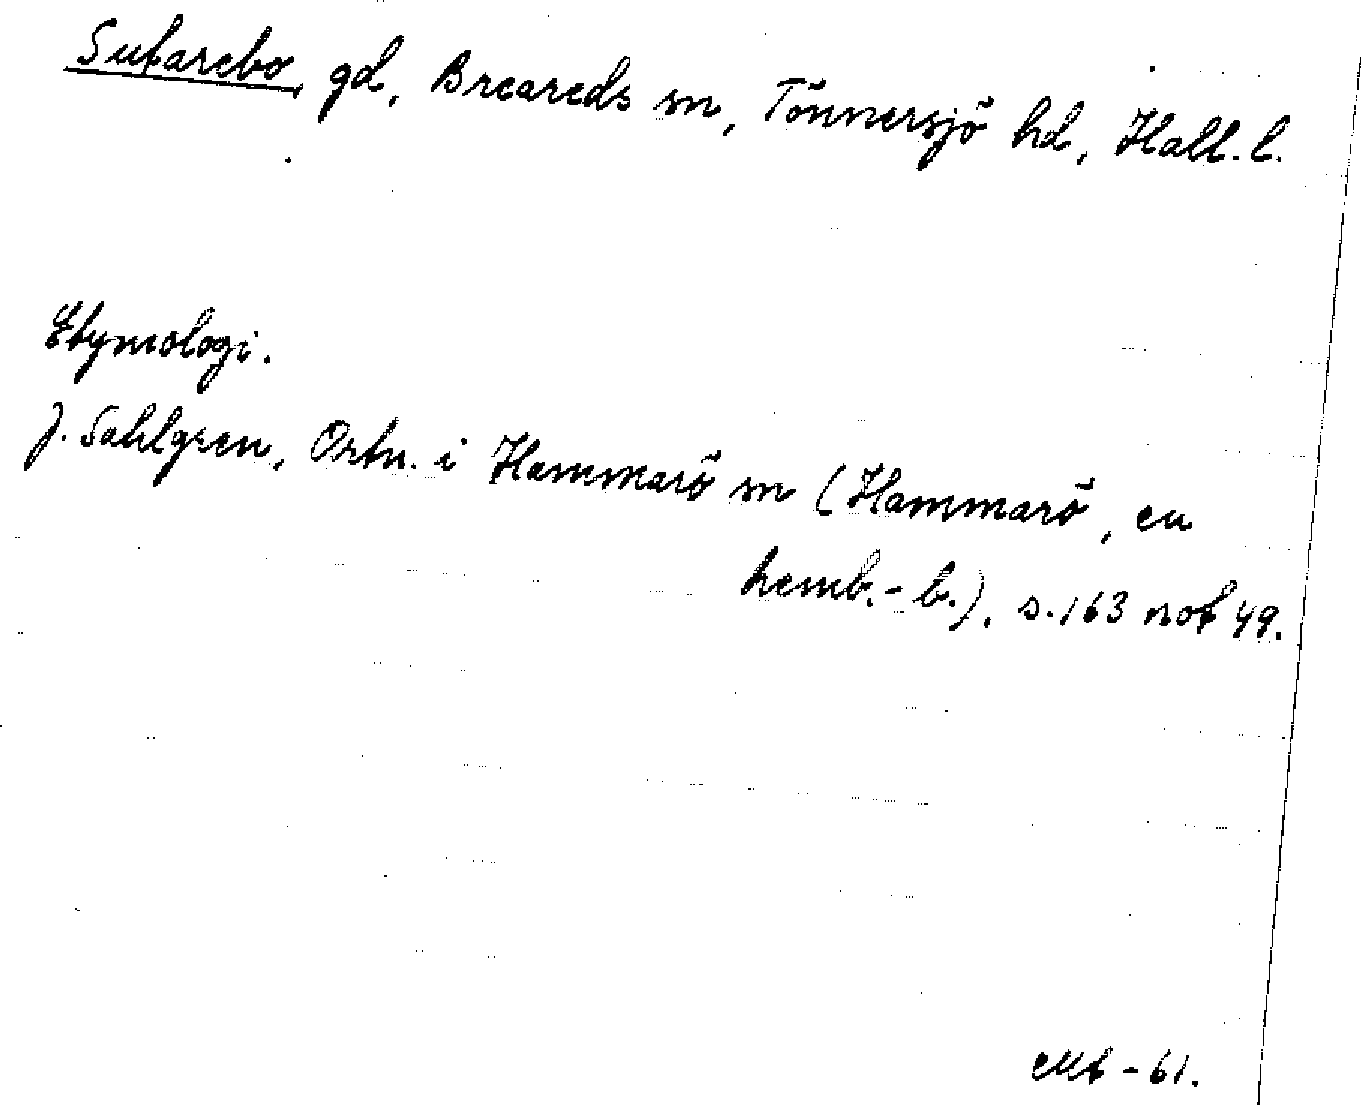 Sutarebo, gd, Breareds sn, Tönnersjö hd, Hall. l.
Etymologi.
J. Sahlgren, Ortn. i Hammarö sn (Hammarö, en
hemb.-b.), s. 163 not 49.
-61.